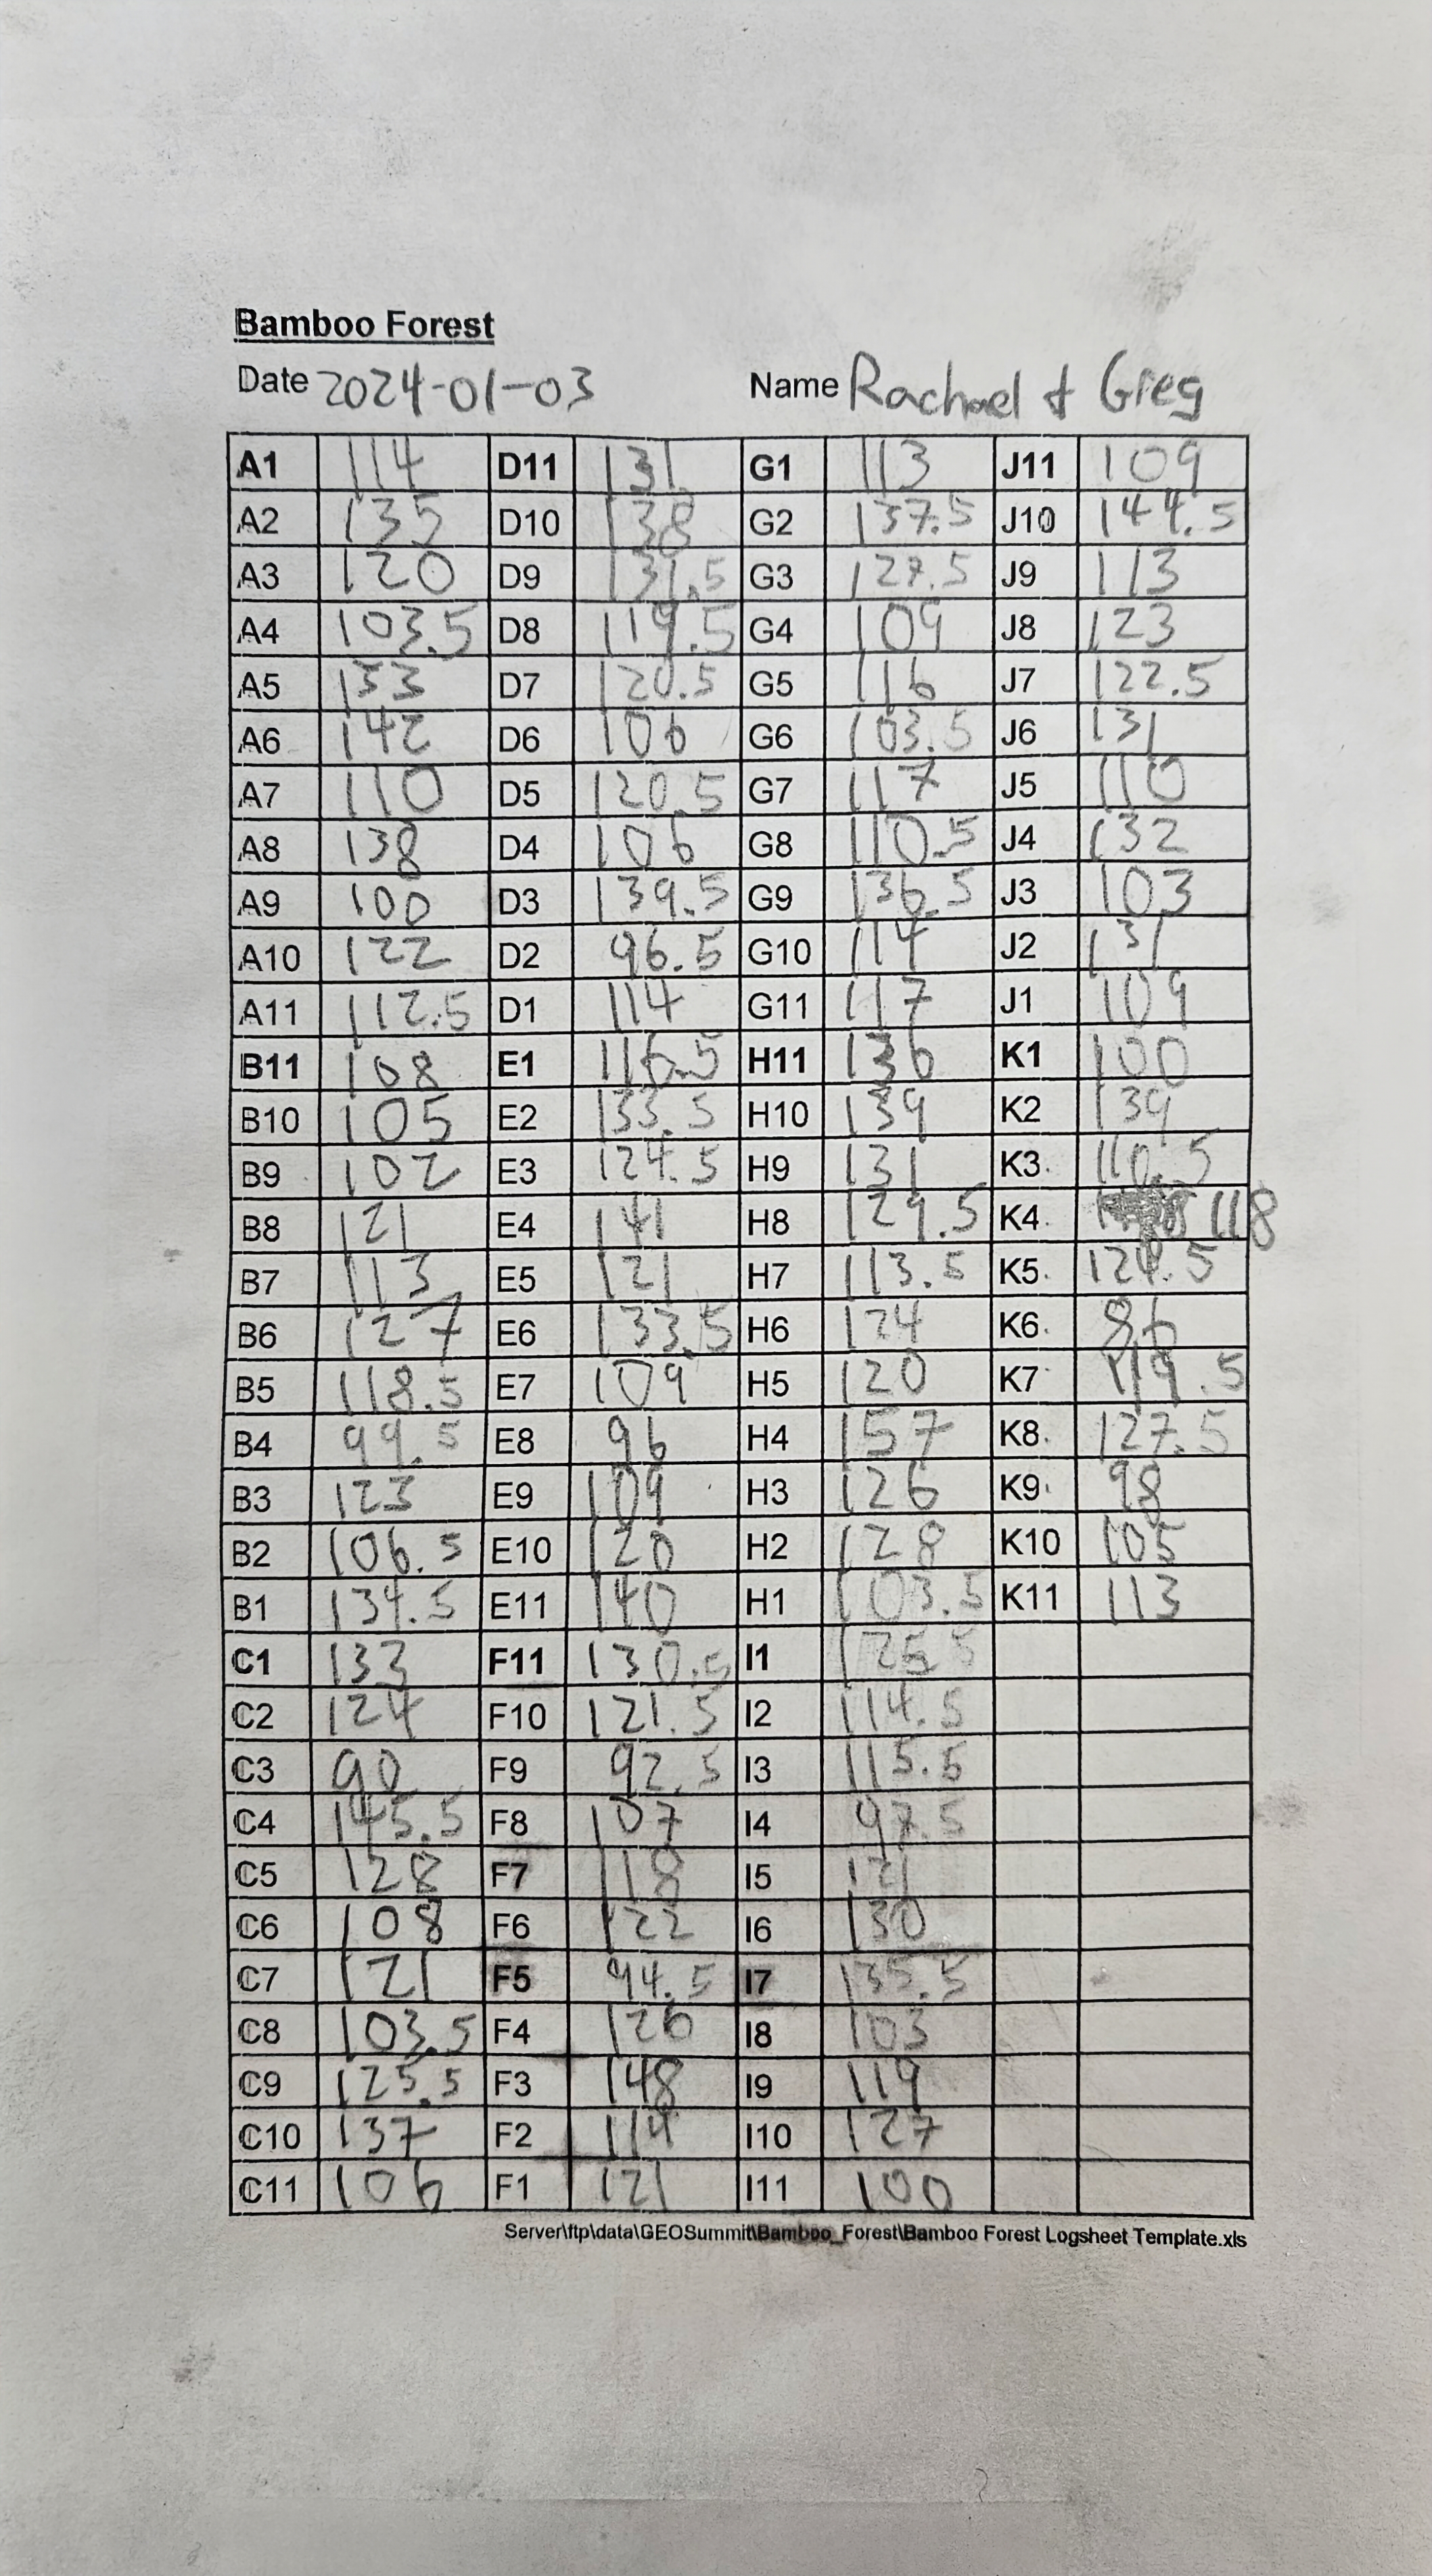 Bamboo Forest
Date 2024-01-03 Name Rachael & Greg
A1 114 D11 131 G1 113 J11 109
A2 135 D10 138 G2 137.5 J10 144.5
A3 120 D9 131.5 G3 127.5 J9 113
A4 103.5 D8 119.5 G4 109 J8 123
A5 133 D7 120.5 G5 116 J7 122.5
A6 142 D6 106 G6 103.5 J6 131
A7 110 D5 120.5 G7 117 J5 110
A8 138 D4 106 G8 110.5 J4 132
A9 100 D3 139.5 G9 136.5 J3 103
A10 122 D2 96.5 G10 114 J2 131
A11 112.5 D1 114 G11 117 J1 109
B11 108 E1 116.5 H11 136 K1 100
B10 105 E2 133.5 H10 139 K2 139
B9 102 E3 124.5 H9 131 K3 110.5
B8 121 E4 141 H8 129.5 K4 118
B7 113 E5 121 H7 113.5 K5 124.5
B6 127 E6 133.5 H6 124 K6 86
B5 118.5 E7 109 H5 120 K7 119.5
B4 99.5 E8 96 H4 157 K8 127.5
B3 123 E9 109 H3 126 K9 98
B2 106.5 E10 120 H2 128 K10 105
B1 134.5 E11 140 H1 103.5 K11 113
C1 133 F11 130.5 I1 125.5
C2 124 F10 121.5 I2 114.5
C3 90 F9 92.5 I3 115.5
C4 145.5 F8 107 I4 97.5
C5 128 F7 118 I5 121
C6 108 F6 122 I6 130
C7 121 F5 94.5 I7 135.5
C8 103.5 F4 126 I8 103
C9 125.5 F3 148 I9 119
C10 137 F2 114 I10 127
C11 106 F1 121 I11 100
Server\ftp\data\GEOSummit\Bamboo_Forest\Bamboo Forest Logsheet Template.xls